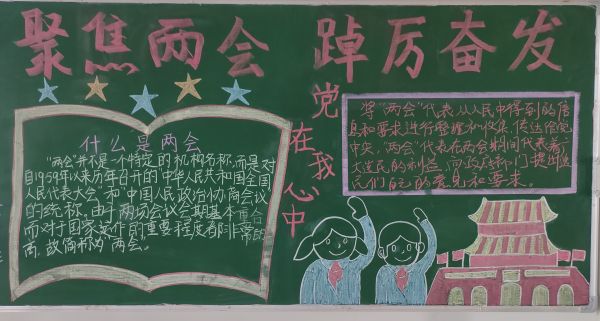 聚焦两会 踔厉奋发
党在我心中
什么是两会
"两会"并不是一个特定的机构名称,而是对
自1959年以来历年召开的"中华人民共和国全国
人民代表大会"和"中国人民政治协商会议"
的统称。由于两场会议会期基本重合
而对于国家运作的重要程度都非常的
高,故简称为"两会。
将"两会"代表从人民中得到的信
息和要求进行整理和收集,传达给党
中央。"两会"代表在两会期间代表着广
大选民的利益,向政府部门提出选
民们自己的意见和要求。